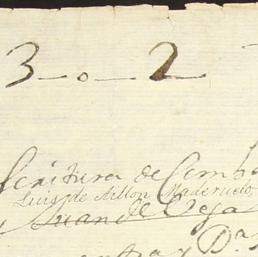 3 - o - 2
Scritura de Cemb
Luis de Aillon Maderuelo
y Juan de Vega